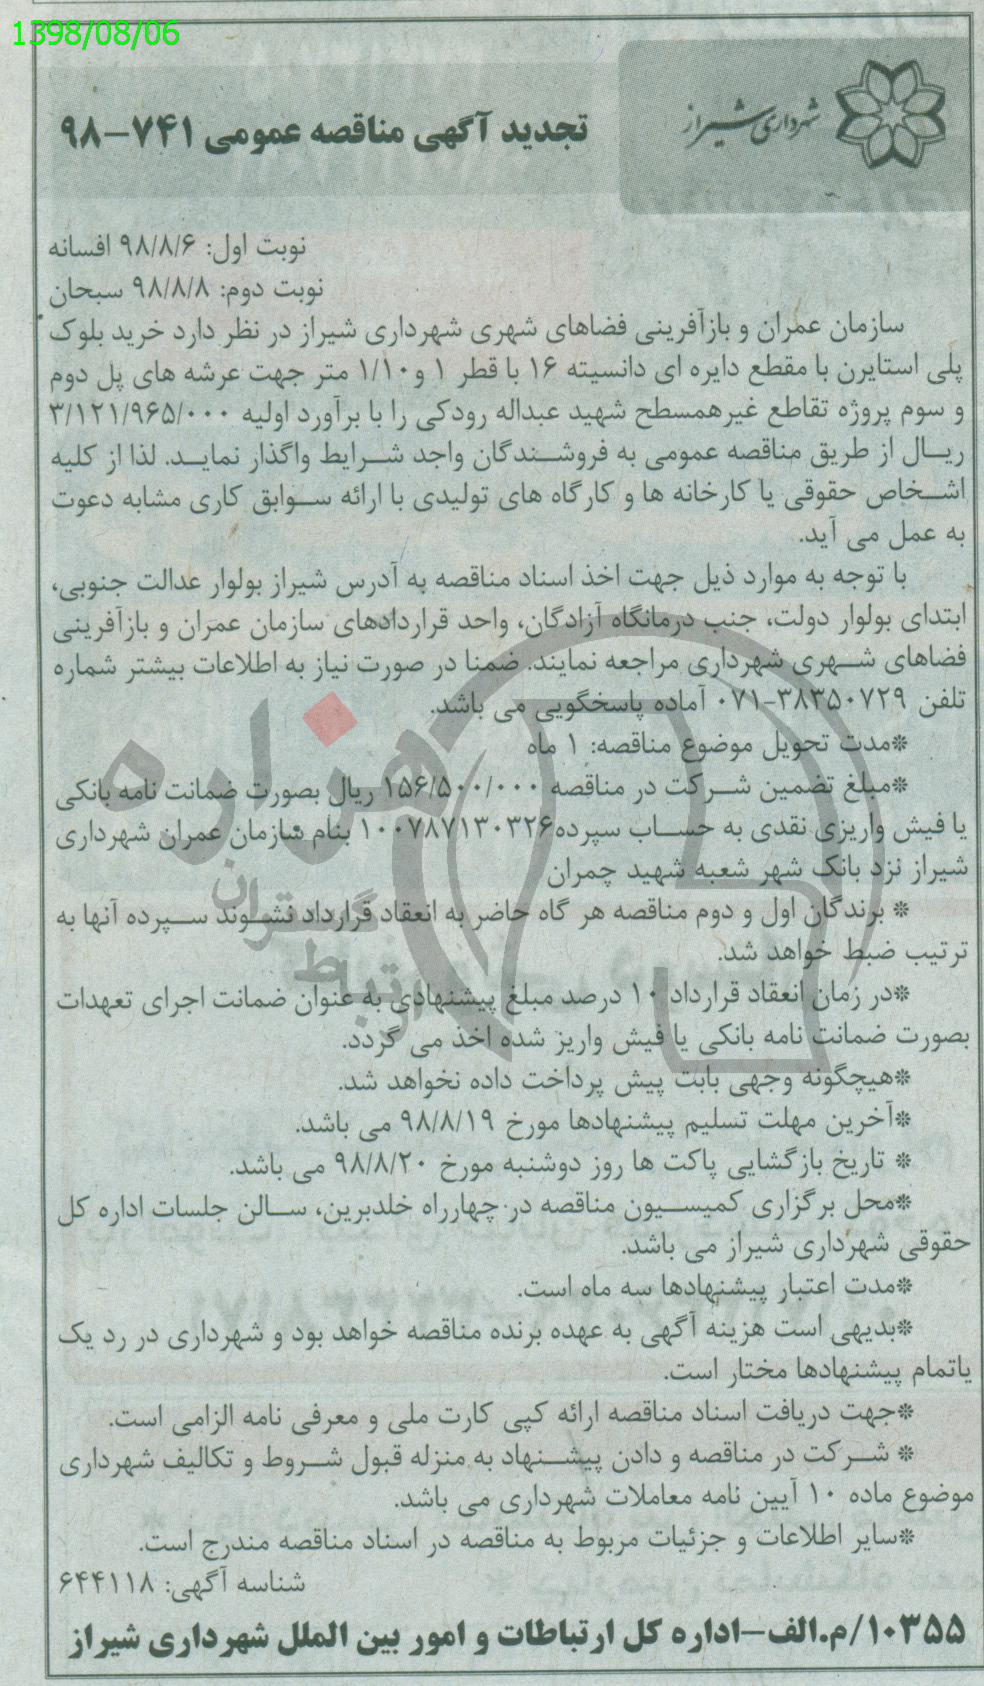 1398/08/06
شهرداری شیراز
تجدید آگهی مناقصه عمومی ۷۴۱-۹۸
نوبت اول: ۹۸/۸/۶ افسانه
نوبت دوم: ۹۸/۸/۸ سبحان
سازمان عمران و بازآفرینی فضاهای شهری شهرداری شیراز در نظر دارد خرید بلوک
پلی استایرن با مقطع دایره ای دانسیته ۱۶ با قطر ۱ و۱/۱۰ متر جهت عرشه های پل دوم
و سوم پروژه تقاطع غیرهمسطح شهید عبداله رودکی را با برآورد اولیه ۳/۱۲۱/۹۶۵/۰۰۰
ریال از طریق مناقصه عمومی به فروشندگان واجد شرایط واگذار نماید. لذا از کلیه
اشخاص حقوقی یا کارخانه ها و کارگاه های تولیدی با ارائه سوابق کاری مشابه دعوت
به عمل می آید.
با توجه به موارد ذیل جهت اخذ اسناد مناقصه به آدرس شیراز بولوار عدالت جنوبی،
ابتدای بولوار دولت، جنب درمانگاه آزادگان، واحد قراردادهای سازمان عمران و بازآفرینی
فضاهای شهری شهرداری مراجعه نمایند. ضمنا در صورت نیاز به اطلاعات بیشتر شماره
تلفن ۳۸۳۵۰۷۲۹-۰۷۱ آماده پاسخگویی می باشد.
*مدت تحویل موضوع مناقصه: ۱ ماه
*مبلغ تضمین شرکت در مناقصه ۱۵۶/۵۰۰/۰۰۰ ریال بصورت ضمانت نامه بانکی
یا فیش واریزی نقدی به حساب سپرده۱۰۰۷۸۷۱۳۰۳۲۶ بنام سازمان عمران شهرداری
شیراز نزد بانک شهر شعبه شهید چمران
* برندگان اول و دوم مناقصه هر گاه حاضر به انعقاد قرارداد نشوند سپرده آنها به
ترتیب ضبط خواهد شد.
*در زمان انعقاد قرارداد ۱۰ درصد مبلغ پیشنهادی به عنوان ضمانت اجرای تعهدات
بصورت ضمانت نامه بانکی یا فیش واریز شده اخذ می گردد.
*هیچگونه وجهی بابت پیش پرداخت داده نخواهد شد.
*آخرین مهلت تسلیم پیشنهادها مورخ ۹۸/۸/۱۹ می باشد.
* تاریخ بازگشایی پاکت ها روز دوشنبه مورخ ۹۸/۸/۲۰ می باشد.
*محل برگزاری کمیسیون مناقصه در چهارراه خلدبرین، سالن جلسات اداره کل
حقوقی شهرداری شیراز می باشد.
*مدت اعتبار پیشنهادها سه ماه است.
*بدیهی است هزینه آگهی به عهده برنده مناقصه خواهد بود و شهرداری در رد یک
یاتمام پیشنهادها مختار است.
*جهت دریافت اسناد مناقصه ارائه کپی کارت ملی و معرفی نامه الزامی است.
* شرکت در مناقصه و دادن پیشنهاد به منزله قبول شروط و تکالیف شهرداری
موضوع ماده ۱۰ آیین نامه معاملات شهرداری می باشد.
*سایر اطلاعات و جزئیات مربوط به مناقصه در اسناد مناقصه مندرج است.
شناسه آگهی: ۶۴۴۱۱۸
۱۰۳۵۵/م.الف-اداره کل ارتباطات و امور بین الملل شهرداری شیراز
هزاره
گستران
ارتباط